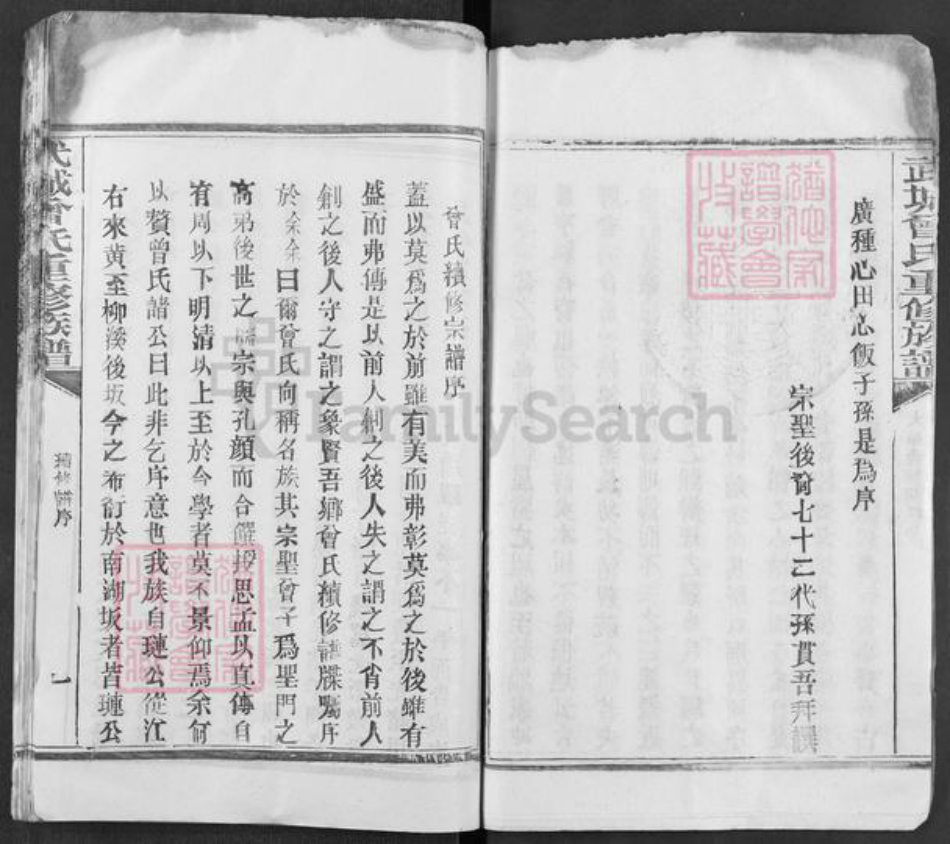 武城曾氏重修族譜
廣種心田心飯子孫是為序
宗聖後裔七十二代孫貫吾拜譔
曾氏續修宗譜序
蓋以莫為之於前雖有美而弗彰莫為之於後雖有
盛而弗傳是以前人創之後人失之謂之不肖前人
創之後人守之謂之象賢吾鄉曾氏續修譜牒囑序
於余余曰爾曾氏向稱名族其宗聖曾子為聖門之
高弟後世之宗與孔顏而合饌授思孟以真傳自
有周以下明清以上至於今學者莫不景仰焉余何
以贅曾氏諸公曰此非乞序意也我族自璉公從江
右來黃至柳溪後坂今之布衍於南湖坂者皆璉公
武城曾氏重修族譜
續修譜序
一
譜學會
收藏
FamilySearch